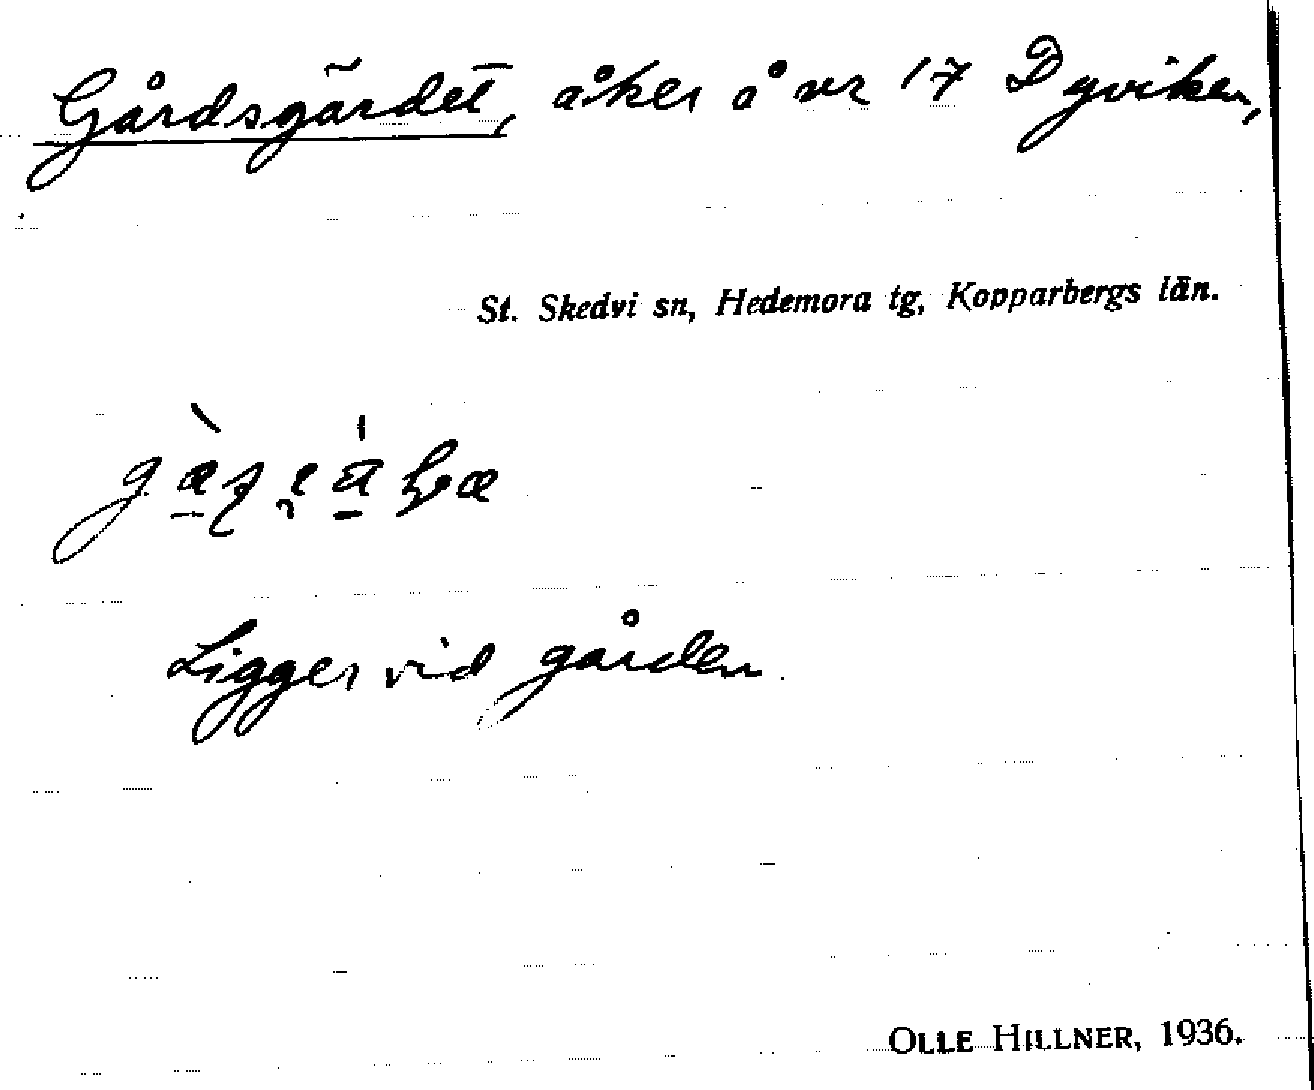 Gårdsgärdet, åker å nr 17 Dyviken,
St. Skedvi sn, Hedemora tg, Kopparbergs län.
Ligger vid gården
OLLE HILLNER, 1936.